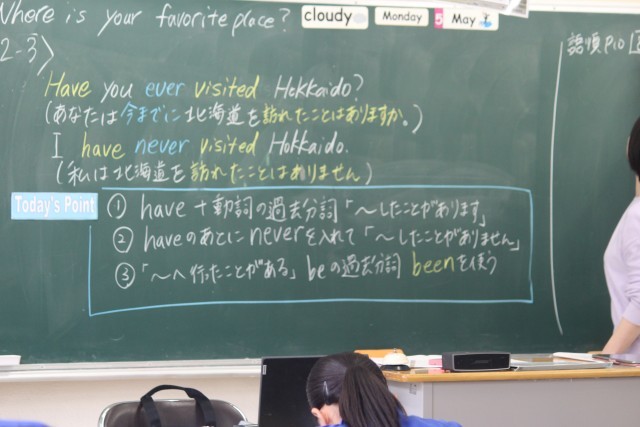 Where is your favorite place?
cloudy
Monday
5 May
2-3>
Have you ever visited Hokkaido?
(あなたは今までに北海道を訪れたことはありますか。)
I have never visited Hokkaido.
(私は北海道を訪れたことはありません)
Today's Point
① have + 動詞の過去分詞「〜したことがあります」
② haveのあとにneverを入れて「〜したことがありません」
③「〜へ行ったことがある」beの過去分詞 beenを使う
語順 P10